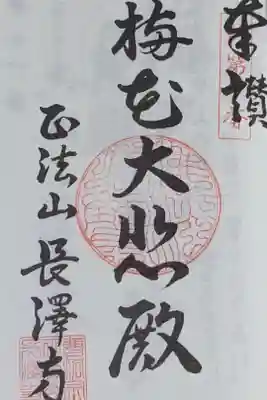 奉讃
梅花大悲殿
正法山長澤寺